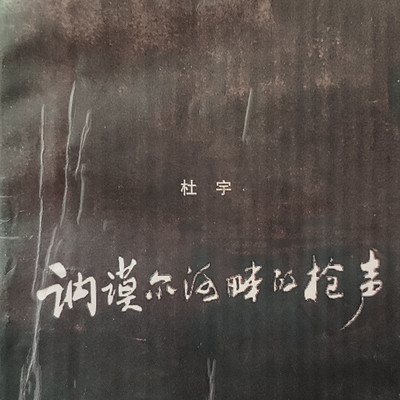 杜宇
讷谟尔河畔的枪声